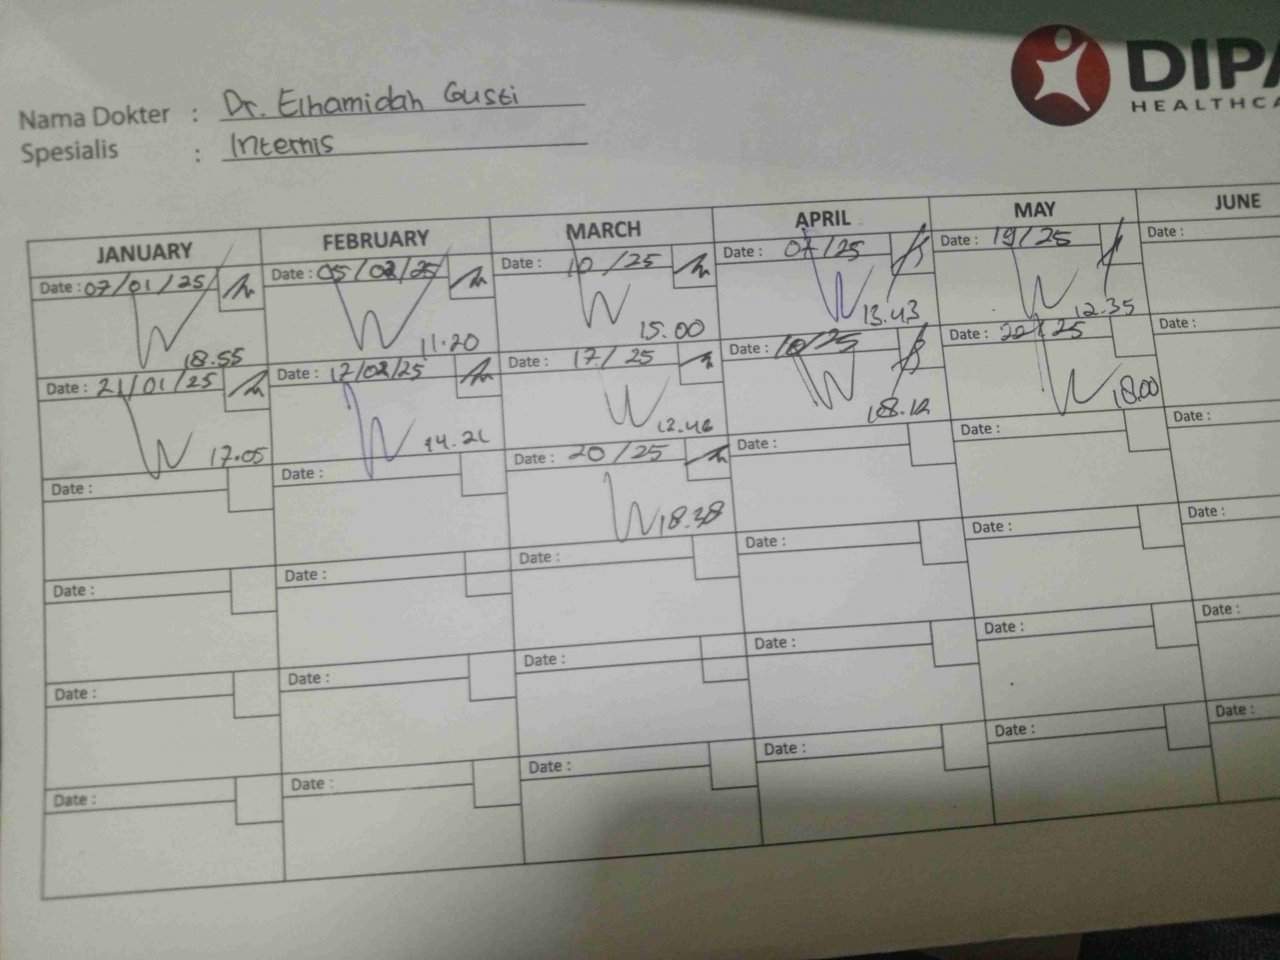 DIPA
HEALTHCA
Nama Dokter : Dr. Elhamidah Gusti
Spesialis : Internis
JANUARY FEBRUARY MARCH APRIL MAY JUNE
Date : 07/01/25 Date : 05/02/25 Date : 10/25 Date : 07/25 Date : 19/25 Date :
18.55 11.20 15.00 13.43 12.35
Date : 21/01/25 Date : 12/02/25 Date : 17/25 Date : 10/25 Date : 22/25 Date :
17.05 14.21 12.46 18.12 18.00
Date : Date : Date : 20/25 Date : Date : Date :
18.38
Date : Date : Date : Date : Date : Date :
Date : Date : Date : Date : Date : Date :
Date : Date : Date : Date : Date : Date :